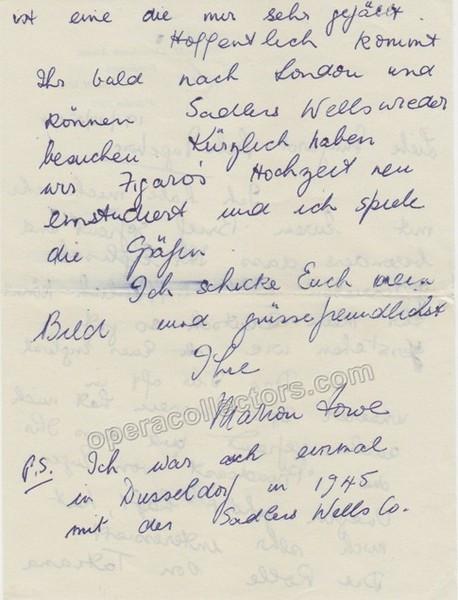 ist eine die mir sehr gefällt.
Hoffentlich kommt
Ihr bald nach London und
können Sadlers Wells wieder
besuchen Kürzlich haben
wir Figaro's Hochzeit neu
einstudiert und ich spiele
die Gräfin.
Ich schicke Euch mein
Bild und grüsse freundlichst
Ihre
Marion Lowe
operacollectors.com
P.S. Ich war auch einmal
in Dusseldorf in 1945
mit der Sadlers Wells Co.